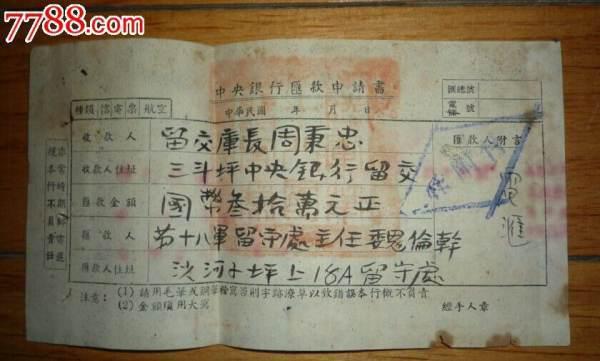 7788.com
中央銀行匯款申請書
匯總號
電條號
種類 信電票 航空
中華民國 年 月 日
收款人 留交庫長周秉忠
匯款人附言
收款人住址 三斗坪中央銀行留交
電匯
匯款金額 國幣叁拾萬元正
匯款人 第十八軍留守處主任魏倫幹
匯款人住址 沙河十坪上18A留守處
注意：
(1) 請用毛筆或鋼筆繕寫否則字跡潦草以致錯誤本行概不負責
(2) 金額須用大寫
經手人章